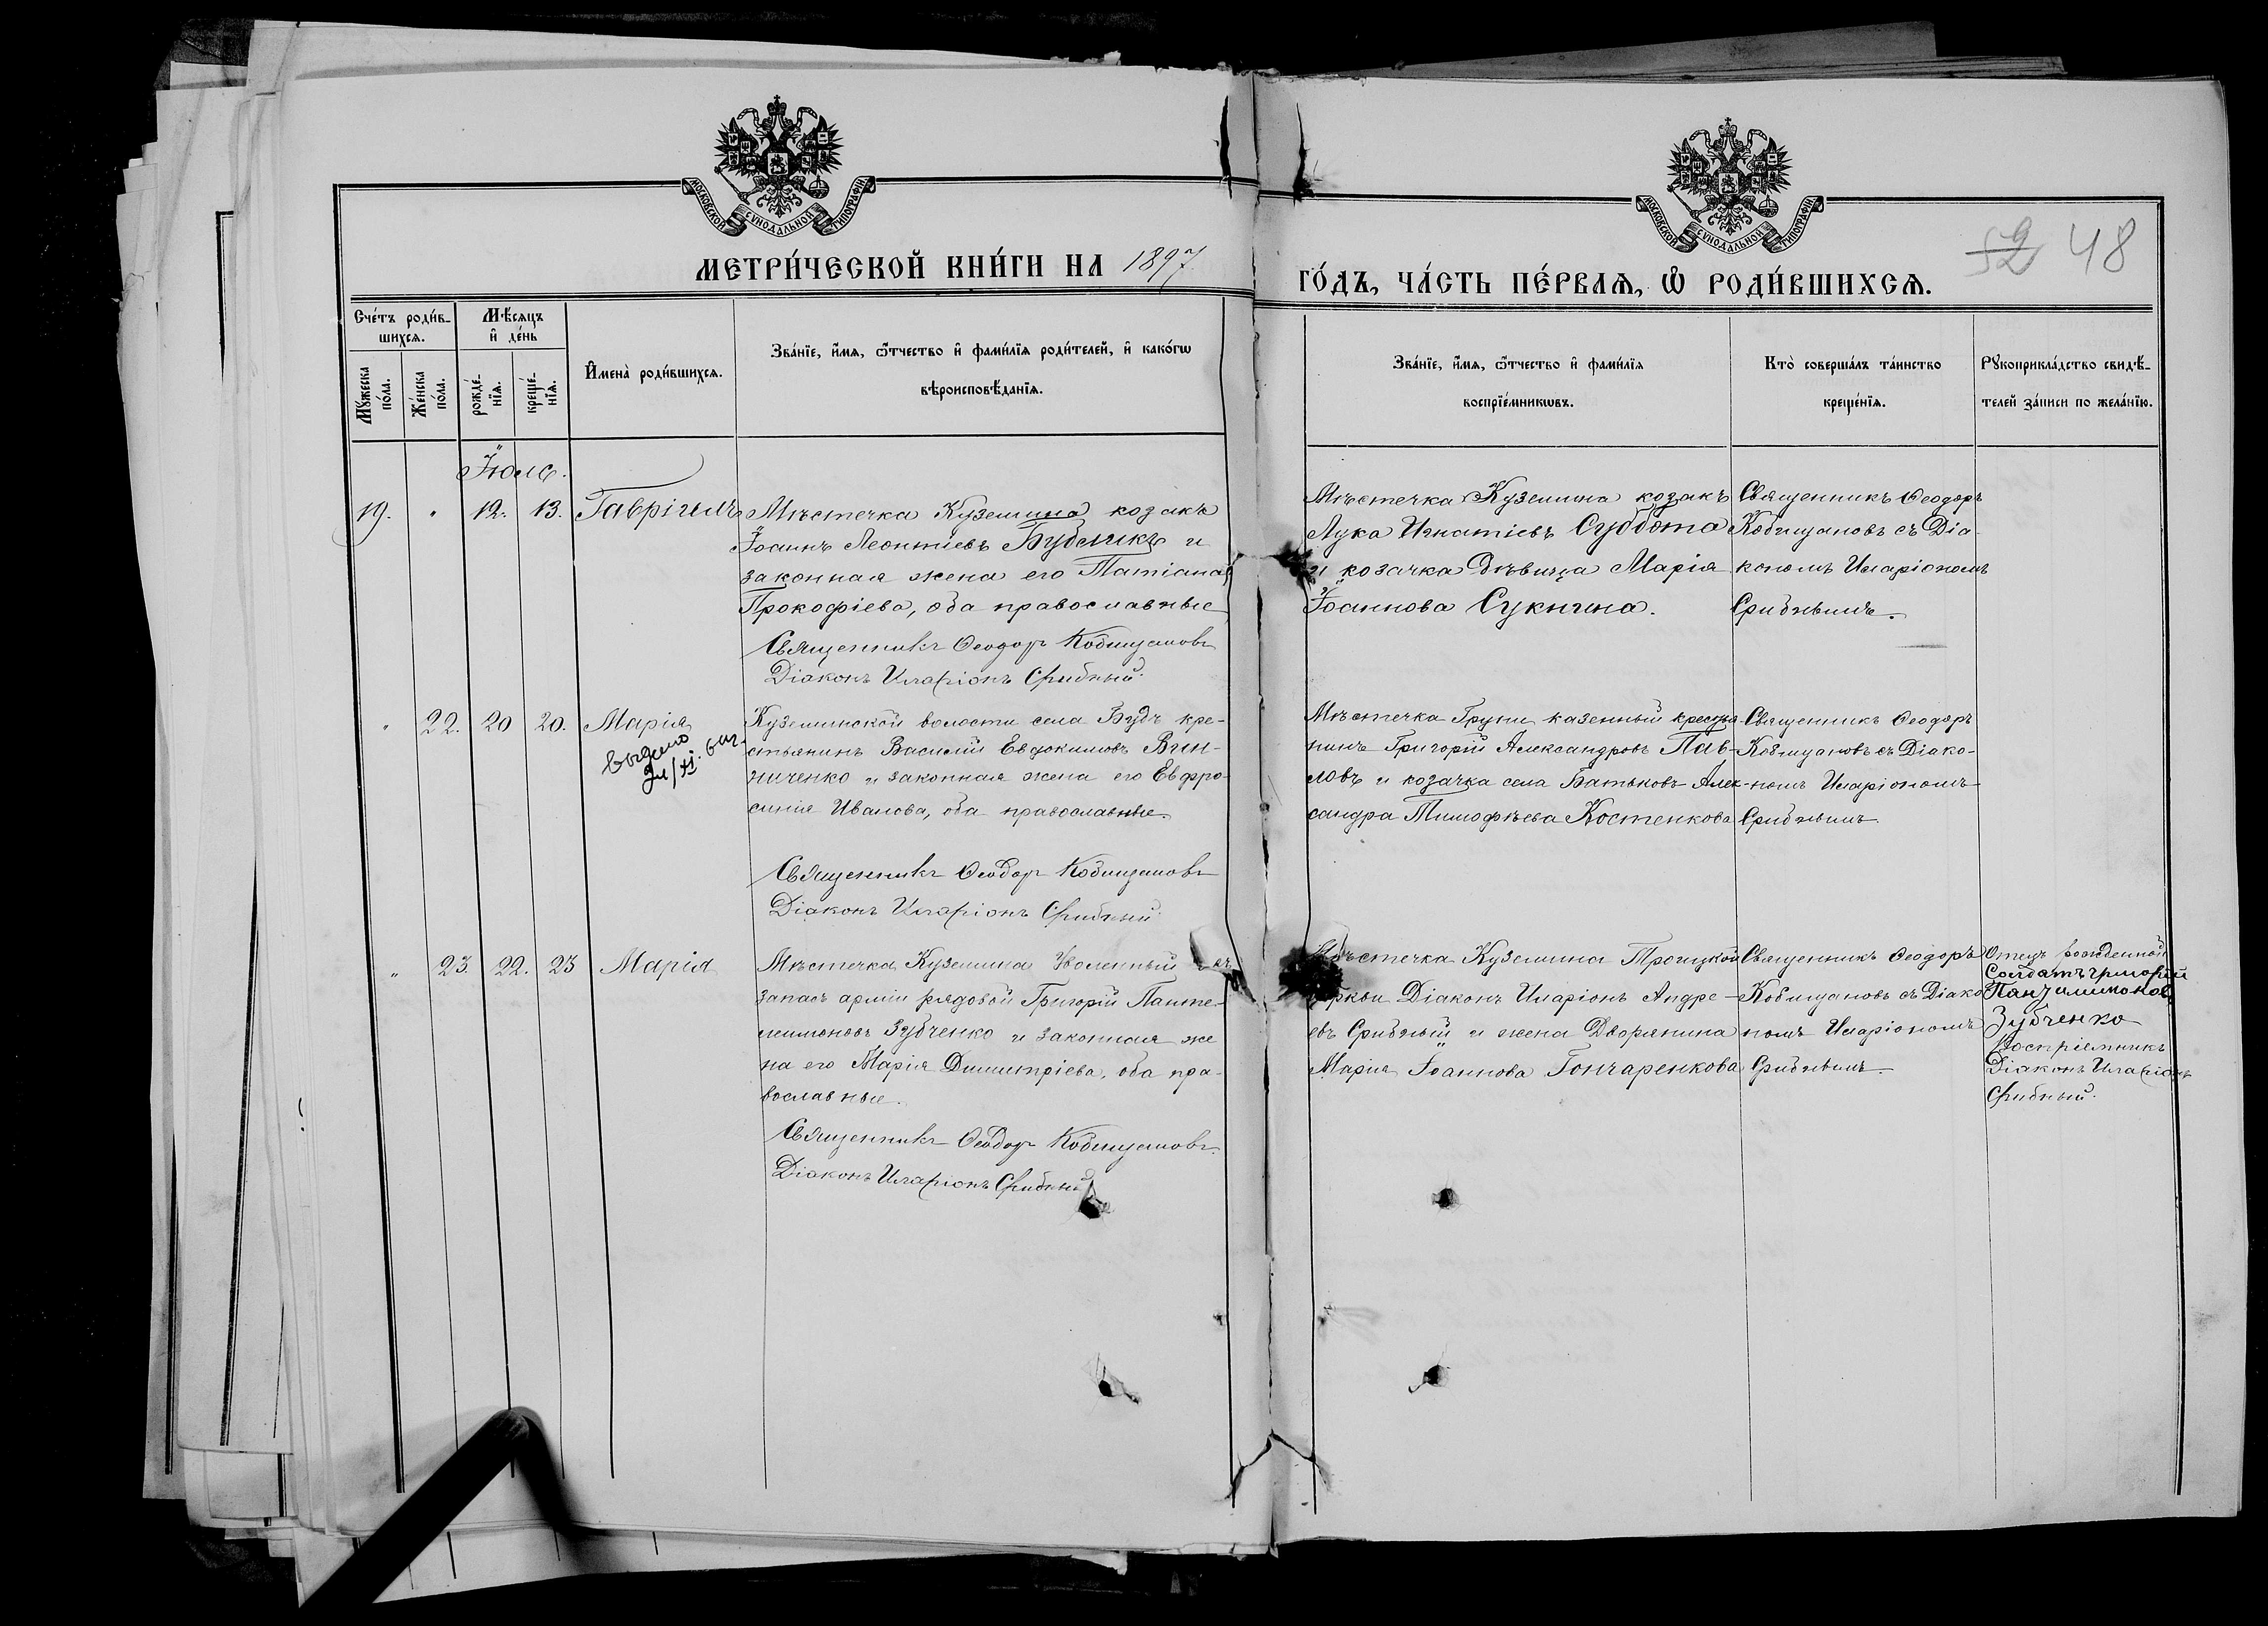 МОСКОВСКОЙ СУНОДАЛЬНОЙ ТИПОГРАФІИ
МЕТРИ́ЧЕСКОЙ КНИ́ГИ НА 1897
Сче́тъ роди́в-
шихся.
Мѣ́сяцъ
и҆ де́нь
Мꙋ́жеска
по́ла.
Же́нска
по́ла.
рожде́-
нїя.
креще́-
нїя.
И҆мена̀ роди́вшихся.
Зва́нїе, и҆́мя, ѻ҆́тчество и҆ фами́лїя роди́телей, и҆ како́гѡ
вѣроисповѣ́данїя.
Іюль.
19. " 12. 13. Гавріилъ
Мѣстечка Куземина козакъ
Іоаннъ Леонтіевъ Бубликъ и
законная жена его Татіана
Прокофіева, оба православные
Священникъ Ѳеодоръ Кобищановъ
Діаконъ Иларіонъ Срибный.
" 22. 20 20. Марія
выдано
Куземинской волости села Будъ кре-
стьянинъ Василій Евдокимовъ Вин-
ниченко и законная жена его Евфро-
синія Иванова, оба православные.
Священникъ Ѳеодоръ Кобищановъ
Діаконъ Иларіонъ Срибный
" 23. 22. 23 Марія
Мѣстечка Куземина Уволенный въ
запасъ арміи рядовой Григорій Панте-
леимоновъ Зубченко и законная же
на его Марія Димитріева, оба пра-
вославные.
Священникъ Ѳеодоръ Кобищановъ.
Діаконъ Иларіонъ Срибный
МОСКОВСКОЙ СУНОДАЛЬНОЙ ТИПОГРАФІИ
52 48
ГО́ДЪ, ЧА́СТЬ ПЕ́РВАЯ, Ѽ РОДИ́ВШИХСЯ.
Зва́нїе, и҆́мя, ѻ҆́тчество и҆ фами́лїя
воспрїе́мникѡвъ.
Кто̀ соверша́лъ та́инство
креще́нїя.
Рꙋкоприкла́дство свидѣ́-
телей за́писи по жела́нїю.
Мѣстечка Куземина козакъ
Лука Игнатіевъ Суббота
и козачка дѣвица Марія
Іоаннова Сукнина.
Священникъ Ѳеодоръ
Кобищановъ съ Діа
кономъ Иларіономъ
Срибнымъ.
Мѣстечка Груни казенный крестья-
нинъ Григорій Александровъ Пав-
ловъ и козачка села Батьковъ Алек-
сандра Тимофѣева Костенкова
Священникъ Ѳеодоръ
Кобищановъ съ Діако-
номъ Иларіономъ
Срибнымъ.
Мѣстечка Куземина Троицкой
Церкви Діаконъ Иларіонъ Андре-
евъ Срибный и жена Дворянина
Марія Іоаннова Гончаренкова
Священникъ Ѳеодоръ
Кобищановъ съ Діако
номъ Иларіономъ
Срибнымъ.
Отецъ рожденной
Солдатъ Григорій
Пантилимонов
Зубченко
Воспріемникъ
Діаконъ Иларіонъ
Срибный.